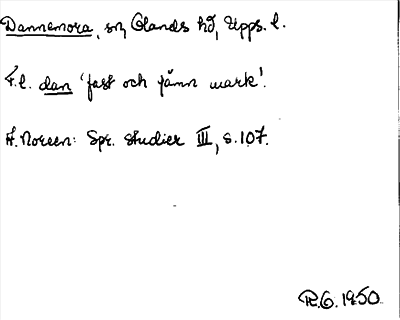 Dannemora, sn, Olands hd, Upps. l.
F.l. dan 'fast och jämn mark'.
A. Noreen: Spr. studier III, s. 107.
R.G. 1950.